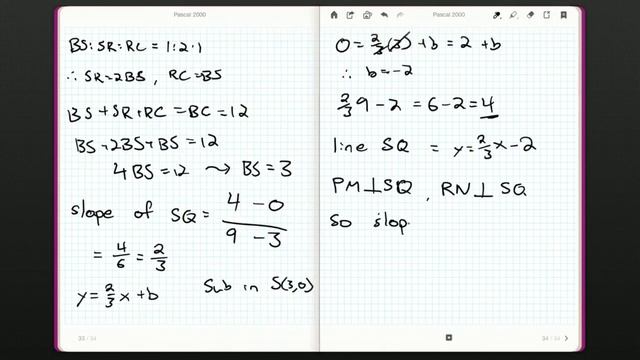 Pascal 2000
BS:SR:RC = 1:2:1
∴ SR=2BS, RC=BS
BS + SR + RC = BC = 12
BS + 2BS + BS = 12
4BS = 12 ⤳ BS = 3
slope of SQ = (4-0)/(9-3)
= 4/6 = 2/3
y = 2/3 x + b Sub in S(3,0)
33 / 34
Pascal 2000
0 = 2/3(3) + b = 2 + b
∴ b = -2
2/3 9 - 2 = 6 - 2 = 4
line SQ = y = 2/3 x - 2
PM ⊥ SQ, RN ⊥ SQ
So slop
34 / 34